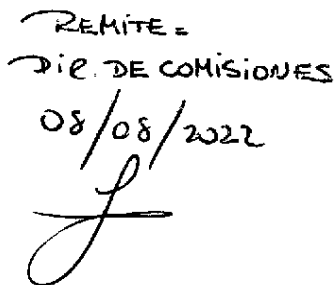 REMITE =
Dir. DE COMISIONES
08/08/2022